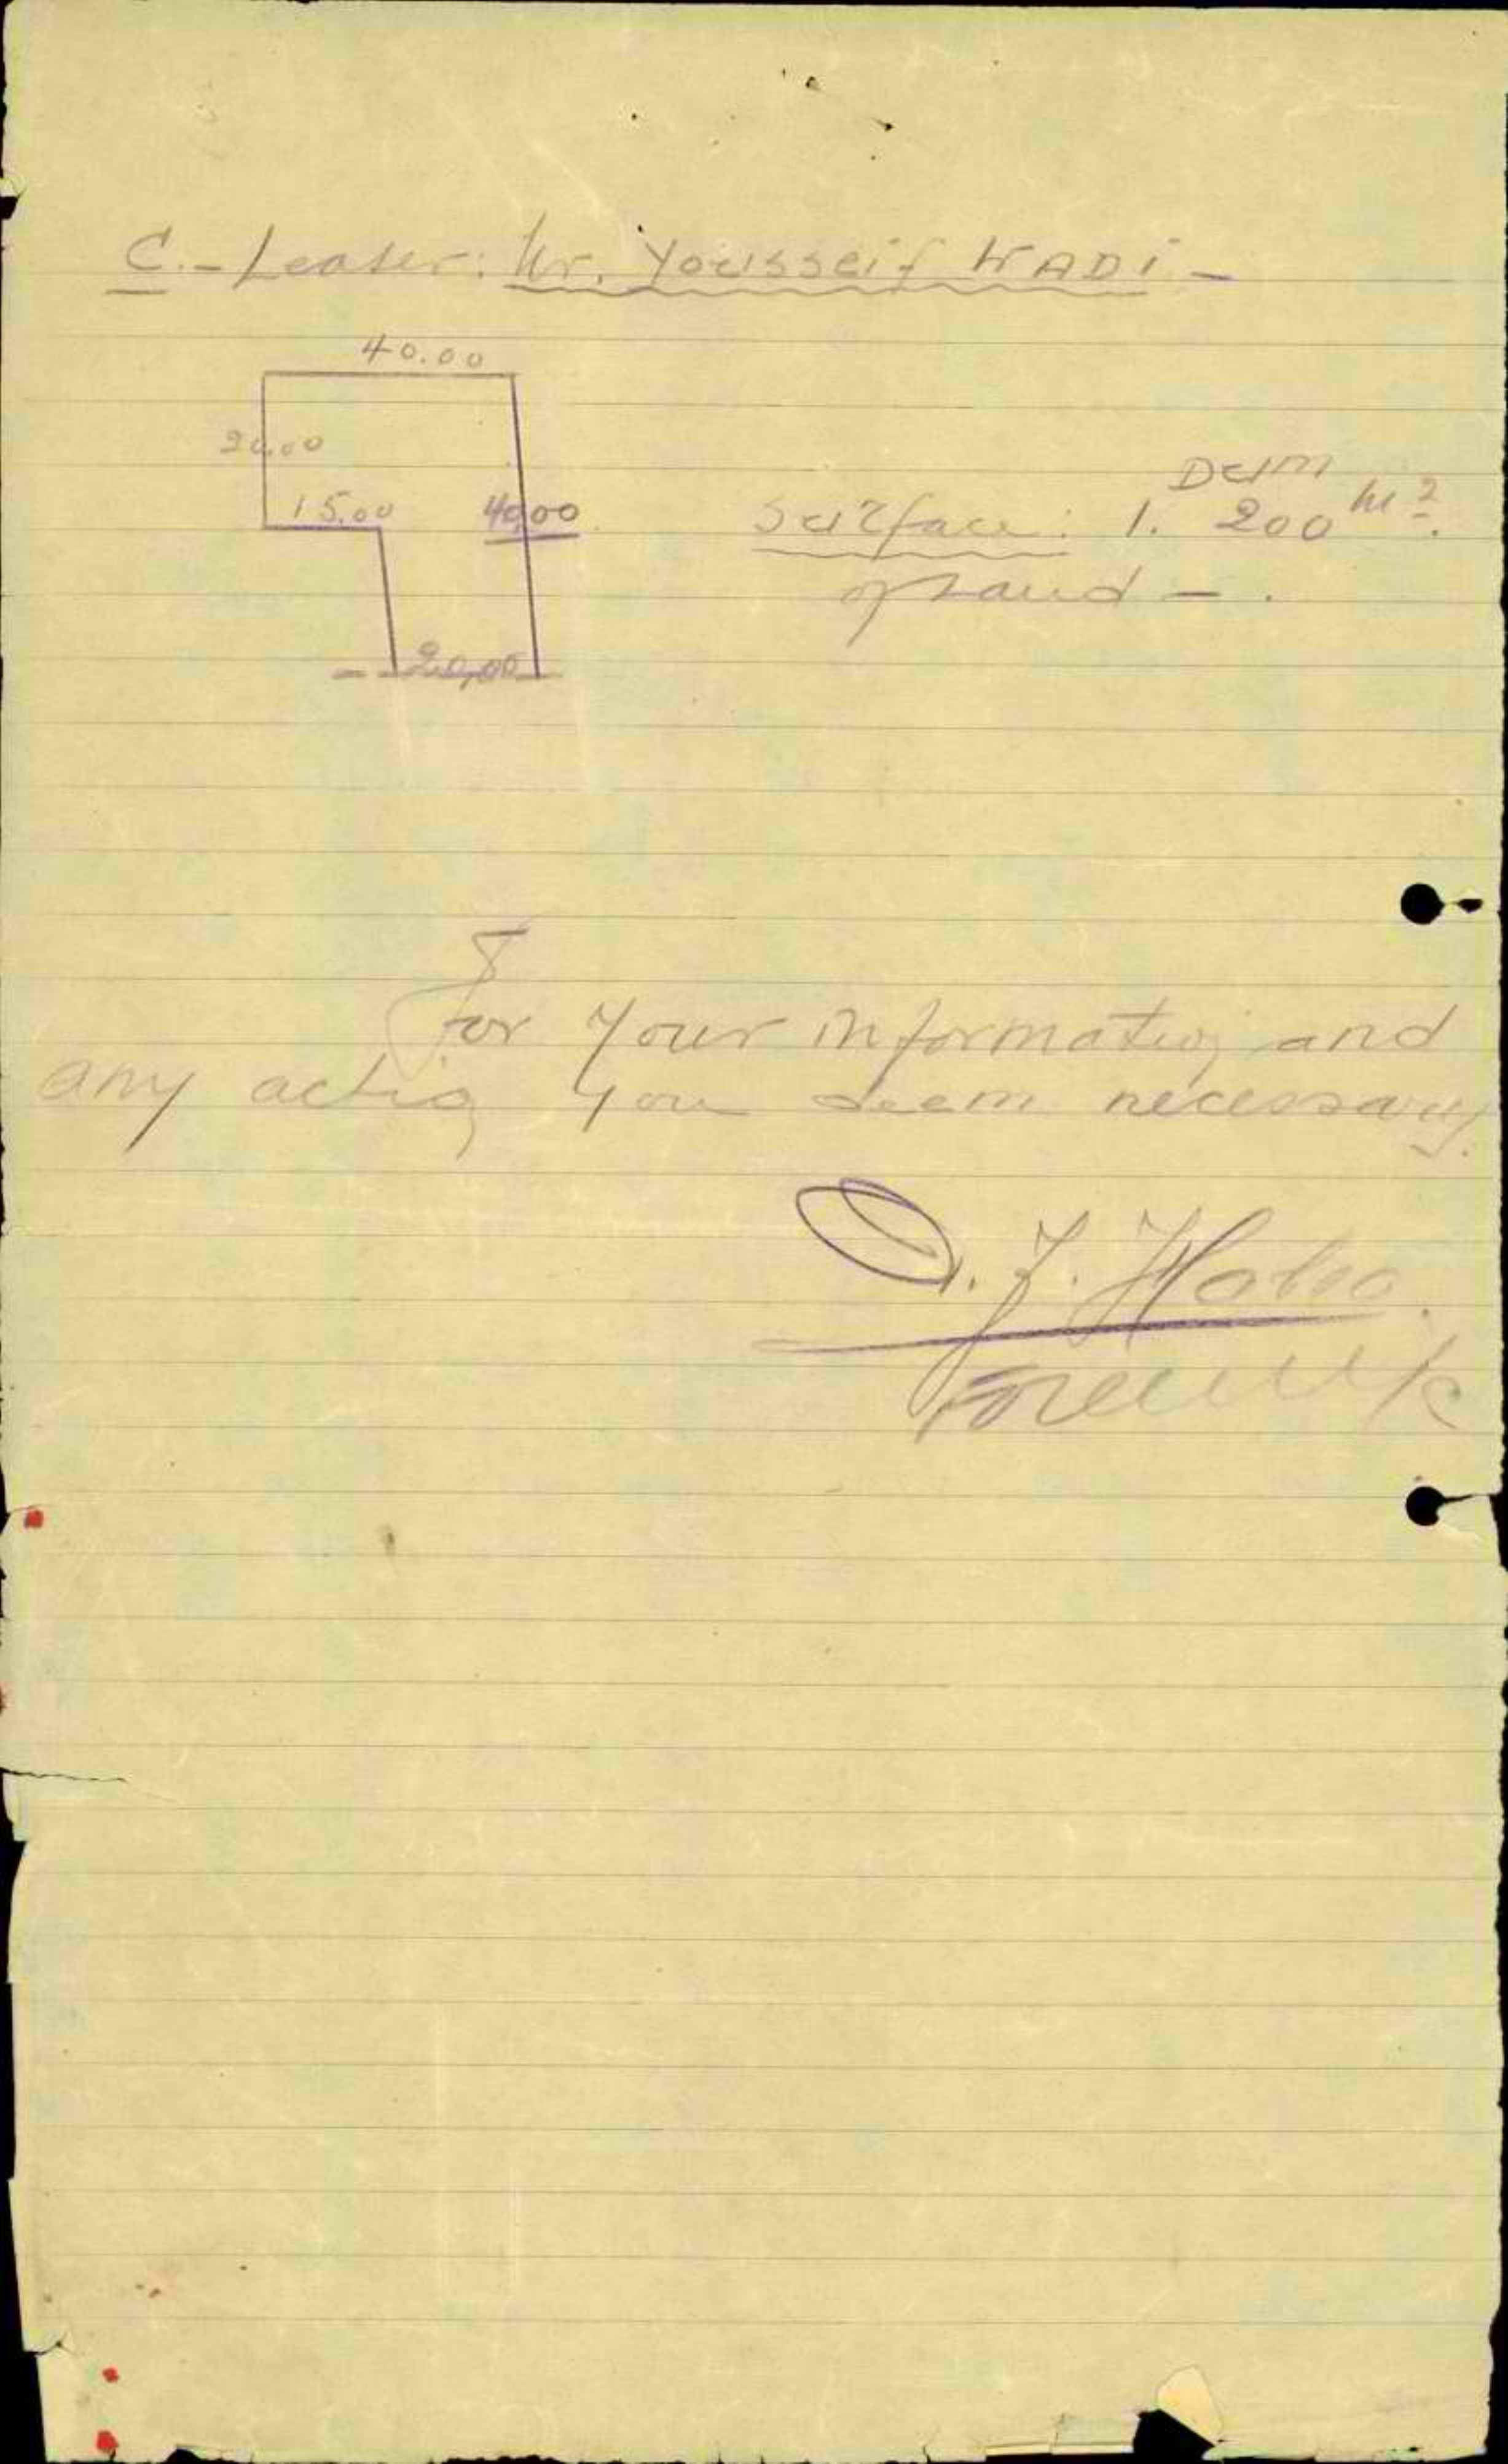 C.- Leaser: Mr. Yousseif WADI -
40.00
20.00
15.00 40.00
Dum
Surface: 1. 200 m2.
of Land - .
20,00
For your information and
any action you deem necessary.
J.